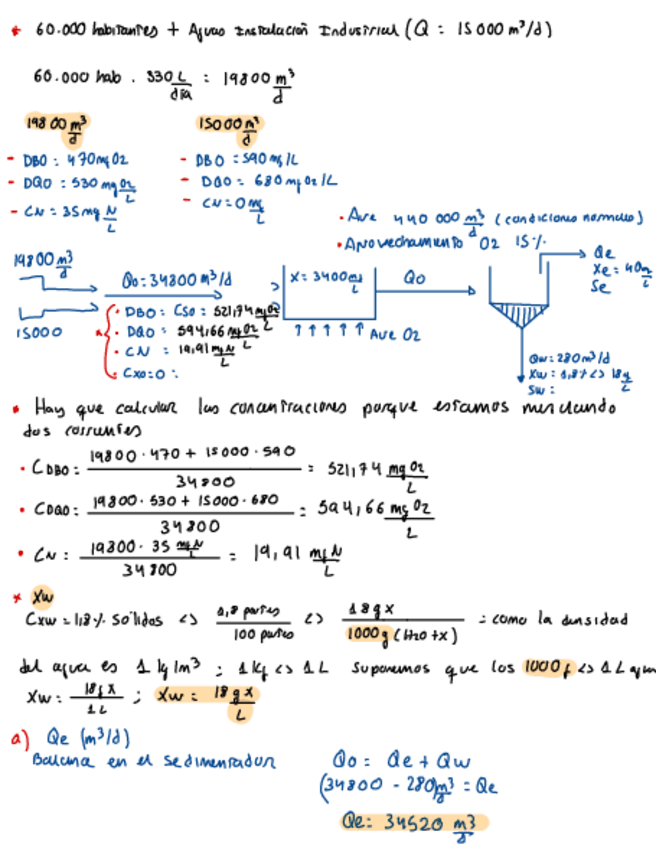 * 60.000 habitantes + Aguas Instalación Industrial (Q = 15000 m³/d)
60.000 hab . 330 L/día = 19800 m³/d
19800 m³/d 15000 m³/d
- DBO: 470 mg O2 - DBO: 590 mg/L
- DQO: 530 mg O2/L - DQO: 680 mg O2/L
- CN: 35 mg N/L - CN: 0 mg/L
• Aire 440 000 m³/d (condiciones normales)
• Aprovechamiento O2 15%
19800 m³/d
15000
Qo: 34800 m³/d
• DBO: Cso: 521,74 mg O2/L
• DQO: 594,66 mg O2/L
• CN: 19,91 mg N/L
• Cxo: 0:
X: 3400 mg/L
Aire O2
Qo
Qe
Xe: 40 mg/L
Se
Qw: 280 m³/d
Xw: 1,8% <> 18 g/L
Sw:
• Hay que calcular las concentraciones porque estamos mezclando
dos corrientes
• CDBO: (19800 · 470 + 15000 · 590) / 34800 = 521,74 mg O2/L
• CDQO: (19800 · 530 + 15000 · 680) / 34800 = 594,66 mg O2/L
• CN: (19800 · 35 mg N/L) / 34800 = 19,91 mg N/L
* Xw
Cxw = 1,8% sólidos <> 1,8 partes / 100 partes <> 18 g x / 1000 g (H2O + x) = como la densidad
del agua es 1 kg/m³ ; 1 kg <> 1 L suponemos que los 1000 g <> 1 L agua
Xw = 18 g x / 1 L ; Xw = 18 g x / L
a) Qe (m³/d)
Balance en el sedimentador Qo = Qe + Qw
(34800 - 280) m³/d = Qe
Qe: 34520 m³/d